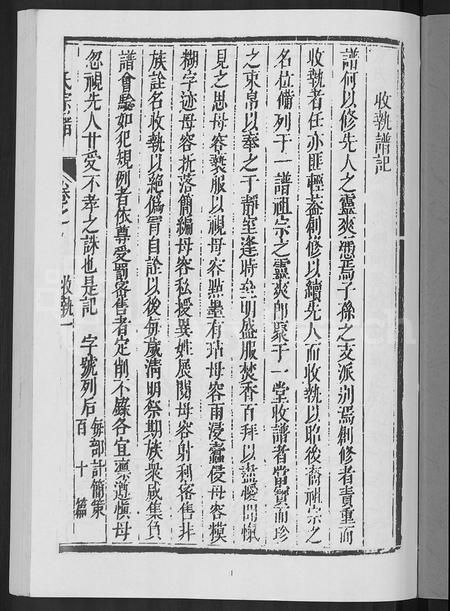 收執譜記
譜何以修先人之靈爽憑焉子孫之支派別焉創修者責重而
收執者任亦匪輕蓋創修以續先人而收執以昭後裔祖宗之
名位備列于一譜祖宗之靈爽即聚于一堂收譜者當寶而珍
之束帛以奉之于靜室逢時盥明盛服焚香百拜以盡愾聞愾
見之思毋容褻服以視毋容點墨有玷毋容雨浸蠹侵毋容模
糊字迹毋容折落簡編毋容私授異姓展閱毋容射利密售非
族詮名收執以絕僞冒自詮以後每歲清明祭期族衆咸集負
譜會驗如犯規例者依尊受罰密售者定削不錄各宜凜遵慎毋
忽視先人甘受不孝之誅也是記 字號列后 每部計簡策
百十篇
氏宗譜 卷之一 收執 一
1